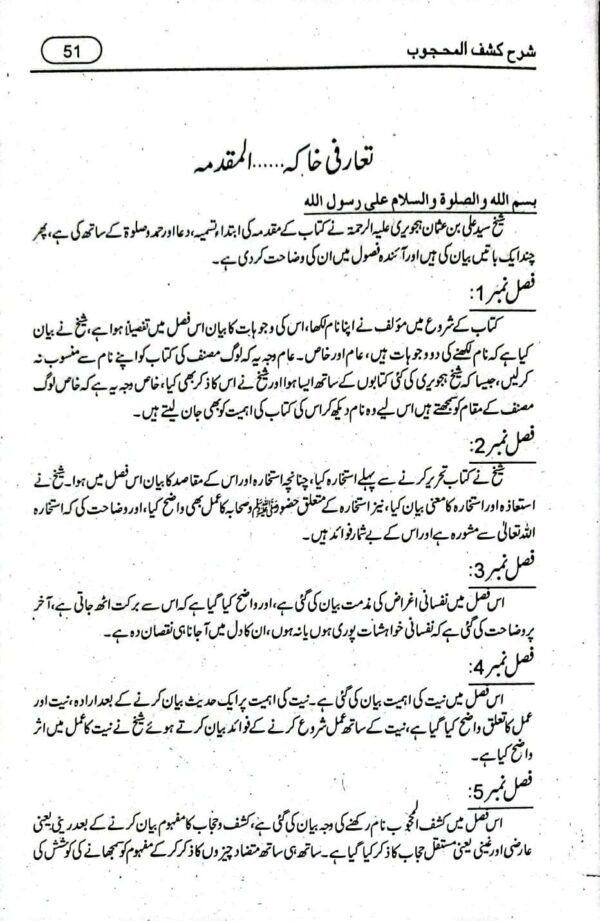 شرح کشف المحجوب
51
تعارفی خاکہ......المقدمہ
بسم الله والصلوة والسلام على رسول الله
شیخ سید علی بن عثمان ہجویری علیہ الرحمۃ نے کتاب کے مقدمہ کی ابتداء تسمیہ، دعا اور حمد و صلوۃ کے ساتھ کی ہے، پھر
چند ایک باتیں بیان کی ہیں اور آئندہ فصول میں ان کی وضاحت کر دی ہے۔
فصل نمبر 1:
کتاب کے شروع میں مؤلف نے اپنا نام لکھا، اس کی وجوہات کا بیان اس فصل میں تفصیلاً ہوا ہے، شیخ نے بیان
کیا ہے کہ نام لکھنے کی دو وجوہات ہیں، عام اور خاص۔ عام وجہ یہ کہ لوگ مصنف کی کتاب کو اپنے نام سے منسوب نہ
کر لیں، جیسا کہ شیخ ہجویری کی کئی کتابوں کے ساتھ ایسا ہوا اور شیخ نے اس کا ذکر بھی کیا، خاص وجہ یہ ہے کہ خاص لوگ
مصنف کے مقام کو سمجھتے ہیں اس لیے وہ نام دیکھ کر اس کی کتاب کی اہمیت کو بھی جان لیتے ہیں۔
فصل نمبر 2:
شیخ نے کتاب تحریر کرنے سے پہلے استخارہ کیا، چنانچہ استخارہ اور اس کے مقاصد کا بیان اس فصل میں ہوا۔ شیخ نے
استعاذہ اور استخارہ کا معنی بیان کیا، نیز استخارہ کے متعلق حضور ﷺ و صحابہ کا عمل بھی واضح کیا، اور وضاحت کی کہ استخارہ
اللہ تعالیٰ سے مشورہ ہے اور اس کے بے شمار فوائد ہیں۔
فصل نمبر 3:
اس فصل میں نفسانی اغراض کی مذمت بیان کی گئی ہے، اور واضح کیا گیا ہے کہ اس سے برکت اٹھ جاتی ہے، آخر
پر وضاحت کی گئی ہے کہ نفسانی خواہشات پوری ہوں یا نہ ہوں، ان کا دل میں آ جانا ہی نقصان دہ ہے۔
فصل نمبر 4:
اس فصل میں نیت کی اہمیت بیان کی گئی ہے۔ نیت کی اہمیت پر ایک حدیث بیان کرنے کے بعد ارادہ، نیت اور
عمل کا تعلق واضح کیا گیا ہے، نیت کے ساتھ عمل شروع کرنے کے فوائد بیان کرتے ہوئے شیخ نے نیت کا عمل میں اثر
واضح کیا ہے۔
فصل نمبر 5:
اس فصل میں کشف المحجوب نام رکھنے کی وجہ بیان کی گئی ہے، کشف و حجاب کا مفہوم بیان کرنے کے بعد رینی یعنی
عارضی اور غینی یعنی مستقل حجاب کا ذکر کیا گیا ہے۔ ساتھ ہی ساتھ متضاد چیزوں کا ذکر کر کے مفہوم کو سمجھانے کی کوشش کی